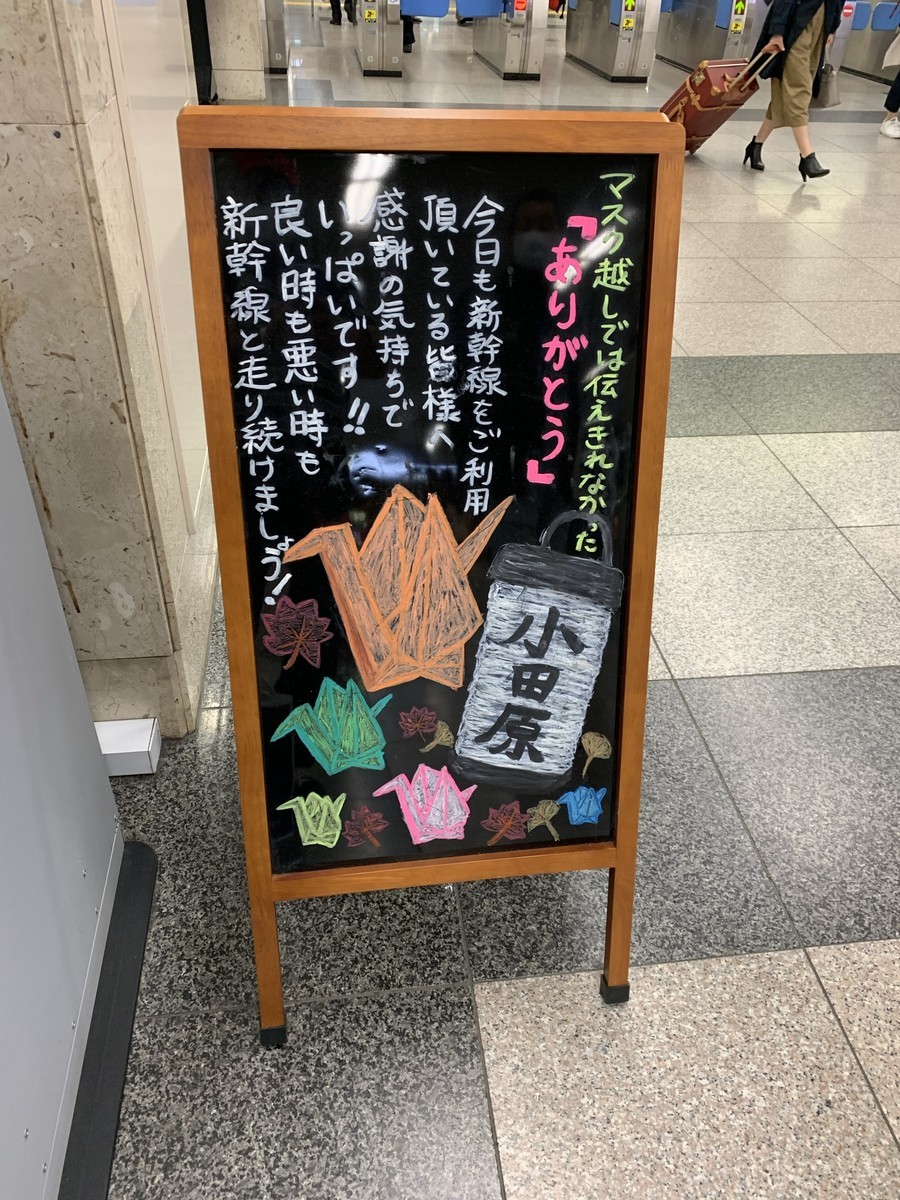 マスク越しでは伝えきれなかった
「ありがとう」
今日も新幹線をご利用
頂いている皆様へ
感謝の気持ちで
いっぱいです!!
良い時も悪い時も
新幹線と走り続けましょう!
小田原